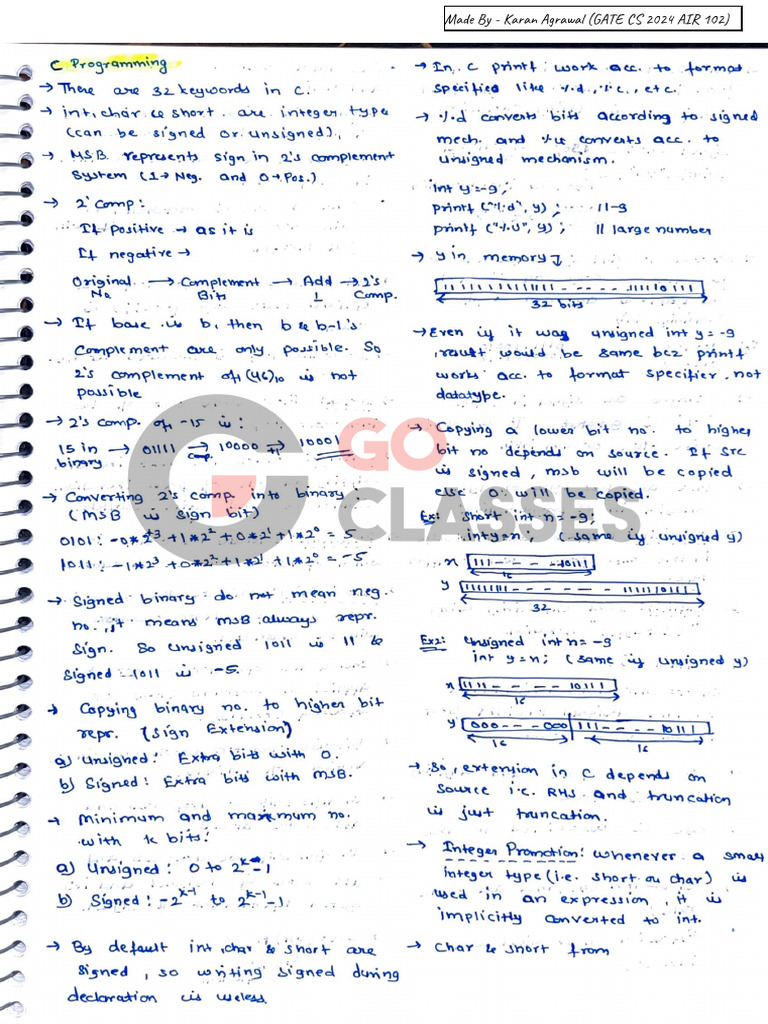 Made By - Karan Agrawal (GATE CS 2024 AIR 102)
C Programming
→ There are 32 keywords in C.
→ int, char & short are integer type
(can be signed or unsigned).
→ M.S.B. represents sign in 2's complement
System (1→ Neg. and 0→Pos.)
→ 2's comp:
If positive → as it is
If negative →
Original No. → Complement Bits → Add 1 → 2's Comp.
→ If base is b, then b & b-1's
Complement are only possible. So
2's complement of (46)10 is not
possible
→ 2's comp. of -15 is:
15 in binary → 01111 →comp. 10000 →+1 10001
→ Converting 2's comp. into binary.
(MSB is sign bit)
0101: -0*2^3 +1*2^2 +0*2^1 +1*2^0 = 5
1011: -1*2^3 +0*2^2 +1*2^1 +1*2^0 = -5
→ Signed binary do not mean neg.
no., it means MSB always repr.
Sign. So unsigned 1011 is 11 &
signed 1011 is -5.
→ Copying binary no. to higher bit
repr. (Sign Extension)
a) Unsigned: Extra bits with 0.
b) Signed: Extra bits with MSB.
→ Minimum and maximum no.
with k bits:
a) Unsigned: 0 to 2^k-1
b) Signed: -2^k-1 to 2^k-1-1
→ By default int, char & short are
signed, so writing signed during
declaration is useless.
→ In C printf work acc. to format
specified like %d, %c, etc.
→ %d converts bits according to signed
mech. and %u converts acc. to
unsigned mechanism.
int y=-9;
printf ("%d", y); //-9
printf ("%U", y); // large number
→ y in memory ↓:
11111111111 - - - - 11111 0 111
32 bits
→ Even if it was unsigned int y=-9
result would be same bcz printf
works acc. to format specifier, not
datatype.
→ Copying a lower bit no. to higher
bit no depends on source. If Src
is signed, msb will be copied
else 0 will be copied.
Ex: Short int n=-9;
int y=n; (same if unsigned y)
n 111 - - - - 10111
16
y 11111111 - - - - 1111110111
32
Ex2: Unsigned int n=-9
int y=n; (same if unsigned y)
n 1111 - - - - 10111
16
y 000 - - - 000 111 - - - 10111
16 16
→ So, extension in C depends on
source i.e. RHS and truncation
is just truncation.
→ Integer Promotion: Whenever a small
integer type (i.e. short or char) is
used in an expression, it is
implicitly converted to int.
→ Char & short from
GO
CLASSES